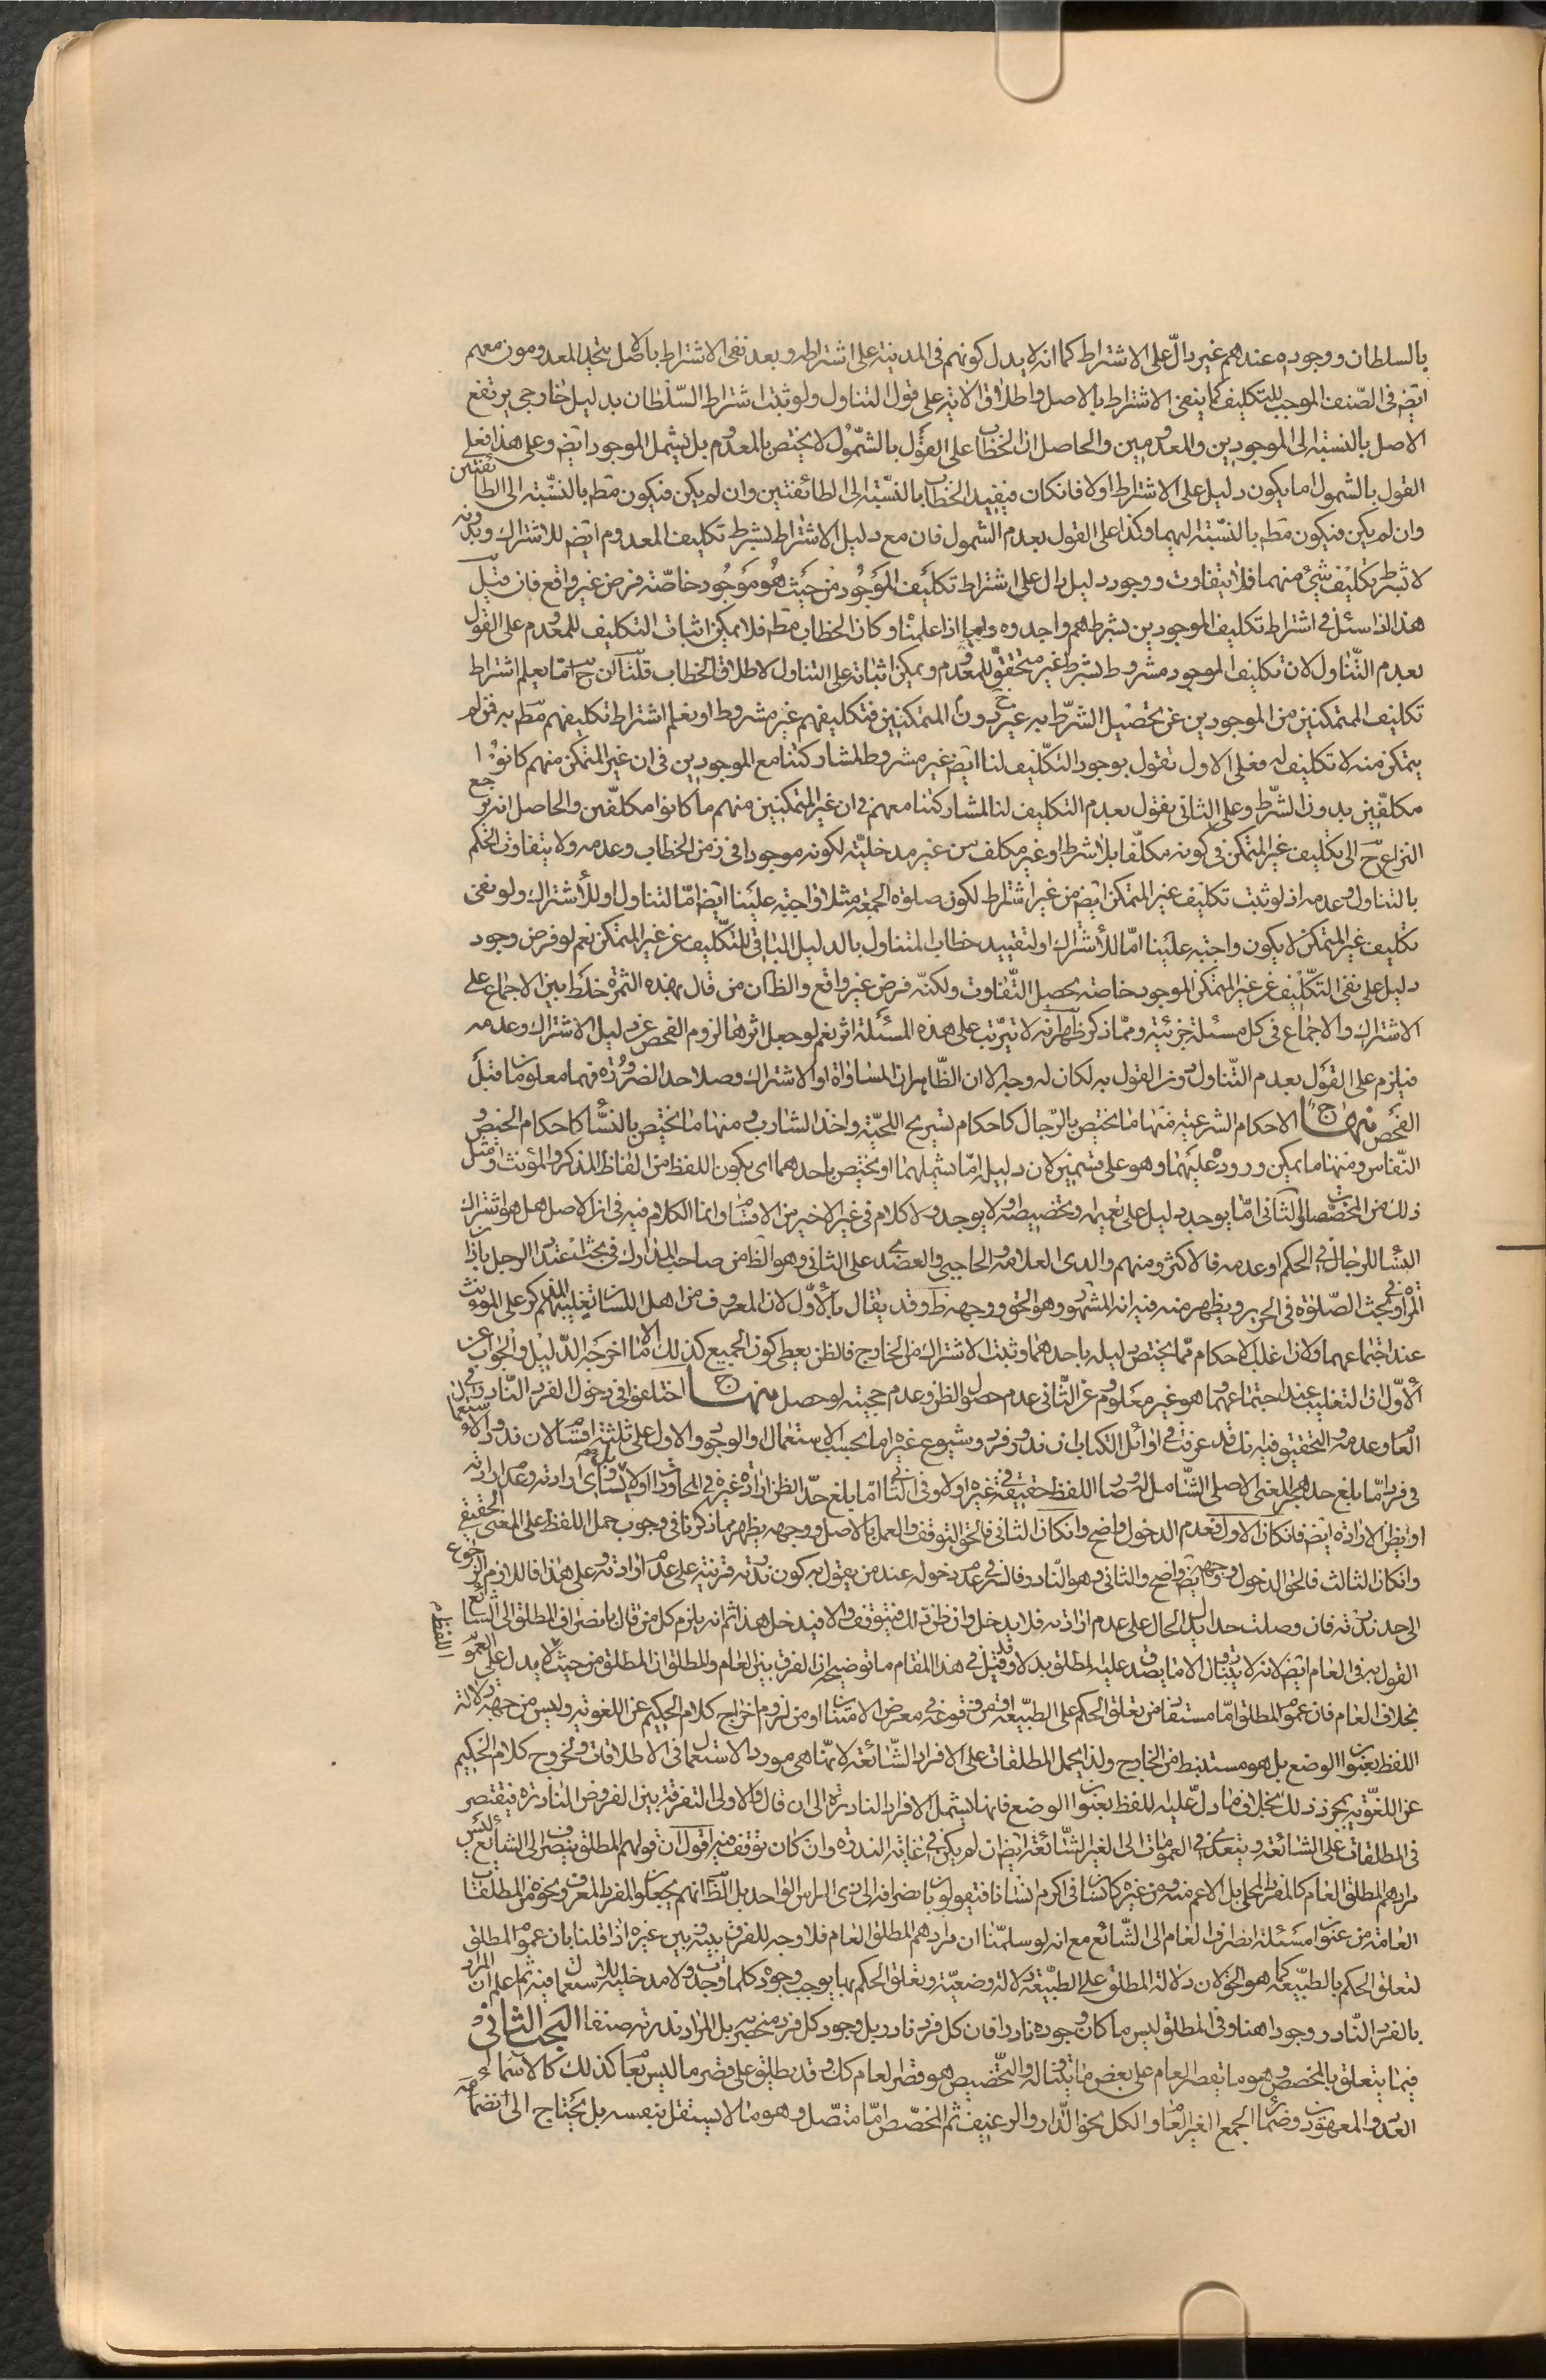 بالسلطان ووجوده عندهم غير دالّ على الاشتراط كما انه لا يدل كونهم فى المدينة على اشتراطه وبعد نفى الاشتراط بالاصل يتحد المعدومون معهم
ايضا فى الصّنف الموجب للتكليف كما ينفى الاشتراط بالاصل واطلاق الاية على قول التناول ولو ثبت اشتراط السّلطان بدليل خارجى يرتفع
الاصل بالنسبة الى الموجودين والمعدومين والحاصل ان الخطاب على القول بالشمول لا يختص بالمعدوم بل يشمل الموجود ايضا وعلى هذا فعلى
القول بالشمول اما يكون دليل على الاشتراط اولا فان كان فيفيد الخطاب بالنسبة الى الطائفتين وان لم يكن فيكون مطم بالنسبة الى الطائفتين
وان لم يكن فيكون مطم بالنسبة اليهما وكذا على القول بعدم الشمول فان مع دليل الاشتراط يشرط تكليف المعدوم ايضا للاشتراك وبدونه
لا يشرط تكليف شئ منهما فلا يتفاوت ووجود دليل دال على اشتراط تكليف الموجود من حيث هو موجود خاصّة فرض غير واقع فان قيل
هذا اذا سئل فى اشتراط تكليف الموجودين بشرط هم واجدوه واما اذا علمناه وكان الخطاب مطم فلا يمكن اثبات التكليف للمعدوم على القول
بعدم التّناول لان تكليف الموجود مشروط بشرط غير متحقق للمعدوم ويمكن اثباته على التناول لاطلاق الخطاب قلنا لكن ح امّا يعلم اشتراط
تكليف المتمكنين من الموجودين عن تحصيل الشرّط به دون غير المتمكنين فتكليفهم غير مشروط او يعلم اشتراط تكليفهم مطم به فمن لم
يتمكن منه لا تكليف له فعلى الاول نقول بوجود التكليف لنا ايضا غير مشروط لمشاركتنا مع الموجودين فى ان غير المتمكن منهم كانوا
مكلفين بدون الشرّط وعلى الثانى نقول بعدم التكليف لنا لمشاركتنا معهم فى ان غير المتمكنين منهم ما كانوا مكلّفين والحاصل انه يرجع
النزاع ح الى تكليف غير المتمكن فى كونه مكلّفا بلا شرط او غير مكلف من غير مدخليّة لكونه موجودا فى زمن الخطاب وعدمه ولا يتفاوت الحكم
بالتناول وعدمه اذ لو ثبت تكليف غير المتمكن ايضا من غير اشتراط لكون صلوة الجمعة مثلا واجبة علينا ايضا امّا للتناول او للاشتراك ولو نفى
تكليف غير المتمكن لا يكون واجبة علينا امّا للاشتراك او لتقييد خطاب المتناول بالدليل النافى للتكليف عن غير المتمكن نعم لو فرض وجود
دليل على نفى التكليف عن غير المتمكن الموجود خاصة يحصل التفاوت ولكنّه فرض غير واقع والظ ان من قال بهذه الثمرة خلط بين الاجماع على
الاشتراك والاجماع فى كل مسئلة جزئية وممّا ذكر ظهر انه لا يترتب على هذه المسئلة اثر نعم لو جعل اثرها لزوم الفحص عن دليل الاشتراك وعدمه
فيلزم على القول بعدم التّناول دون القول به لكان له وجه الا ان الظّاهر ان المساواة او الاشتراك وصلا حد الضرورة فهما معلومان قبل
الفحص منهاج الاحكام الشرعية منها ما يختص بالرّجال كاحكام تسريح اللحيّة واخذ الشارب ومنها ما يختص بالنساء كاحكام الحيض و
النّفاس ومنها ما يمكن وروده عليهما وهو على قسمين لان دليله امّا يشملهما او يختص باحدهما اى يكون اللفظ من الفاظ المذكر والمؤنث ومثل
ذلك من المخصّصات والثانى امّا يوجد دليل على تعميمه وتخصيصه او لا يوجد ولا كلام فى غير الاخير من الاقسام وانما الكلام فيه فى ان الاصل هل هو اشتراك
النساء للرجال فى الحكم او عدمه فالاكثر ومنهم والدى العلامة والحاجبى والعضدى على الثانى وهو الظ من صاحب المدارك فى بحث اعتداد الرجل باذان
المرأة وفى بحث الصّلوة فى الحرير ويظهر منه فيه انه المشهور وهو الحق ووجهه ظ وقد يقال بالأوّل لان المعروف من اهل اللسان تغليبهم المذكر على المؤنث
عند اجتماعهما ولان اغلب الاحكام ممّا يختص دليله باحدهما وثبت الاشتراك من الخارج فالظن يعطى كون الجميع كذلك الا ما اخرجه الدّليل والجواب عن
الأوّل ان التغليب عند اجتماعهما وهو غير معلوم وعن الثّانى عدم حصول الظن وعدم حجيته لو حصل منهاج اختلفوا فى دخول الفرد النّادر فى
العام وعدمه والتحقيق فيه انك قد عرفت فى اوائل الكتاب ان ندور فرد وشيوع غيره اما بحسب الاستعمال او الوجود والاول على ثلثة اقسام لان ندور الاستعمال
فى فرد امّا بلغ حد هجر المعنى الاصلى الشّامل له وصار اللفظ حقيقة فى غيره اولا وفى الثانى امّا بلغ حدّ الظن ارادة غيره فى المحاورات اولا بل يتساوى ارادته وعدم ارادته
او يظن الارادة ايضا فان كان الاول فعدم الدخول واضح وان كان الثانى فالحق التوقف والعمل بالاصل ووجهه يظهر مما ذكرنا فى وجوب حمل اللفظ على المعنى الحقيقى
وان كان الثالث فالحق الدخول ووجهه ايضا واضح والثانى وهو النّادر وفالسر فى عدم دخوله عند من يقول به كون ندرته قرينة على عدم ارادته وعلى هذا فاللازم الرجوع
الى حد ندرته فان وصلت حدا يدل الحال على عدم ارادته فلا يدخل وان ظن ذلك فيتوقف والا فيدخل هذا ثم انه يلزم كل من قال بانصراف المطلق الى الشائع
القول به فى العام ايضا لانه لا يتناول الا ما يصدق عليه المطلق بدلا وقد قيل فى هذا المقام ما توضيحه ان الفرق بين العام والمطلق ان المطلق من حيث اللفظ لا يدل على العموم
بخلاف العام فان عموم المطلق امّا مستفاد من تعلق الحكم على الطبيعة او من وقوعه فى معرض الامتنان او من لزوم اخراج كلام الحكيم عن اللغوية وليس من جهة دلالة
اللفظ بعنوان الوضع بل هو مستنبط من الخارج ولذا يحمل المطلقات على الافراد الشّائعة لانّها هى مورد الاستعمال فى الاطلاقات وخروج كلام الحكيم
عن اللغوية يجوز ذلك بخلاف ما دل عليه اللفظ بعنوان الوضع فانها يشمل الافراد النادرة الى ان قال والاولى التفرقة بين الفروض النادرة فيقتصر
فى المطلقات على الشائعة ويتعدى فى العمومات الى الغير الشّائعة ايضا ان لم يكن فى غاية الندرة وان كان توقف فيه اقول ان قولهم المطلق ينصرف الى الشائع ليس
مرادهم المطلق العام كالمفرد المحلى بل الاعم منه ومن غيره كانسان فى اكرم انسانا فيقولون بانصرافه الى ذى الراس الواحد بل الظ انهم يجعلوا المفرد المعرف ونحوه من المطلقات
العامة من عنوان مسئلة انصراف العام الى الشّائع مع انه لو سلمنا ان مرادهم المطلق العام فلا وجه للفرق بينه وبين غيره اذا قلنا بان عموم المطلق
لتعلق الحكم بالطبيعة كما هو الحق لان دلالة المطلق على الطبيعة دلالة وضعيّة وتعلق الحكم بها يوجب وجوده كلما وجدت ولا مدخلية للاستعمال فيه ثم اعلم ان المراد
بالفرد النّادر وجودا هنا وفى المطلق ليس ما كان وجوده نادرا فان كل فرد نادر بل وجود كل فرد منحصر به بل المراد ندرته صنفا البحث الثانى
فيما يتعلق بالمخصص وهو ما يقصر العام على بعض ما يتناوله والتخصيص هو قصر العام كك وقد يطلق على قصر ما ليس بعام كذلك كالاسماء
العدد والمعهود وضمائر الجمع الغير العام والكل نحو الدّار والرغيف ثم المخصّص امّا متصّل وهو ما لا يستقل بنفسه بل يحتاج الى انضمامه